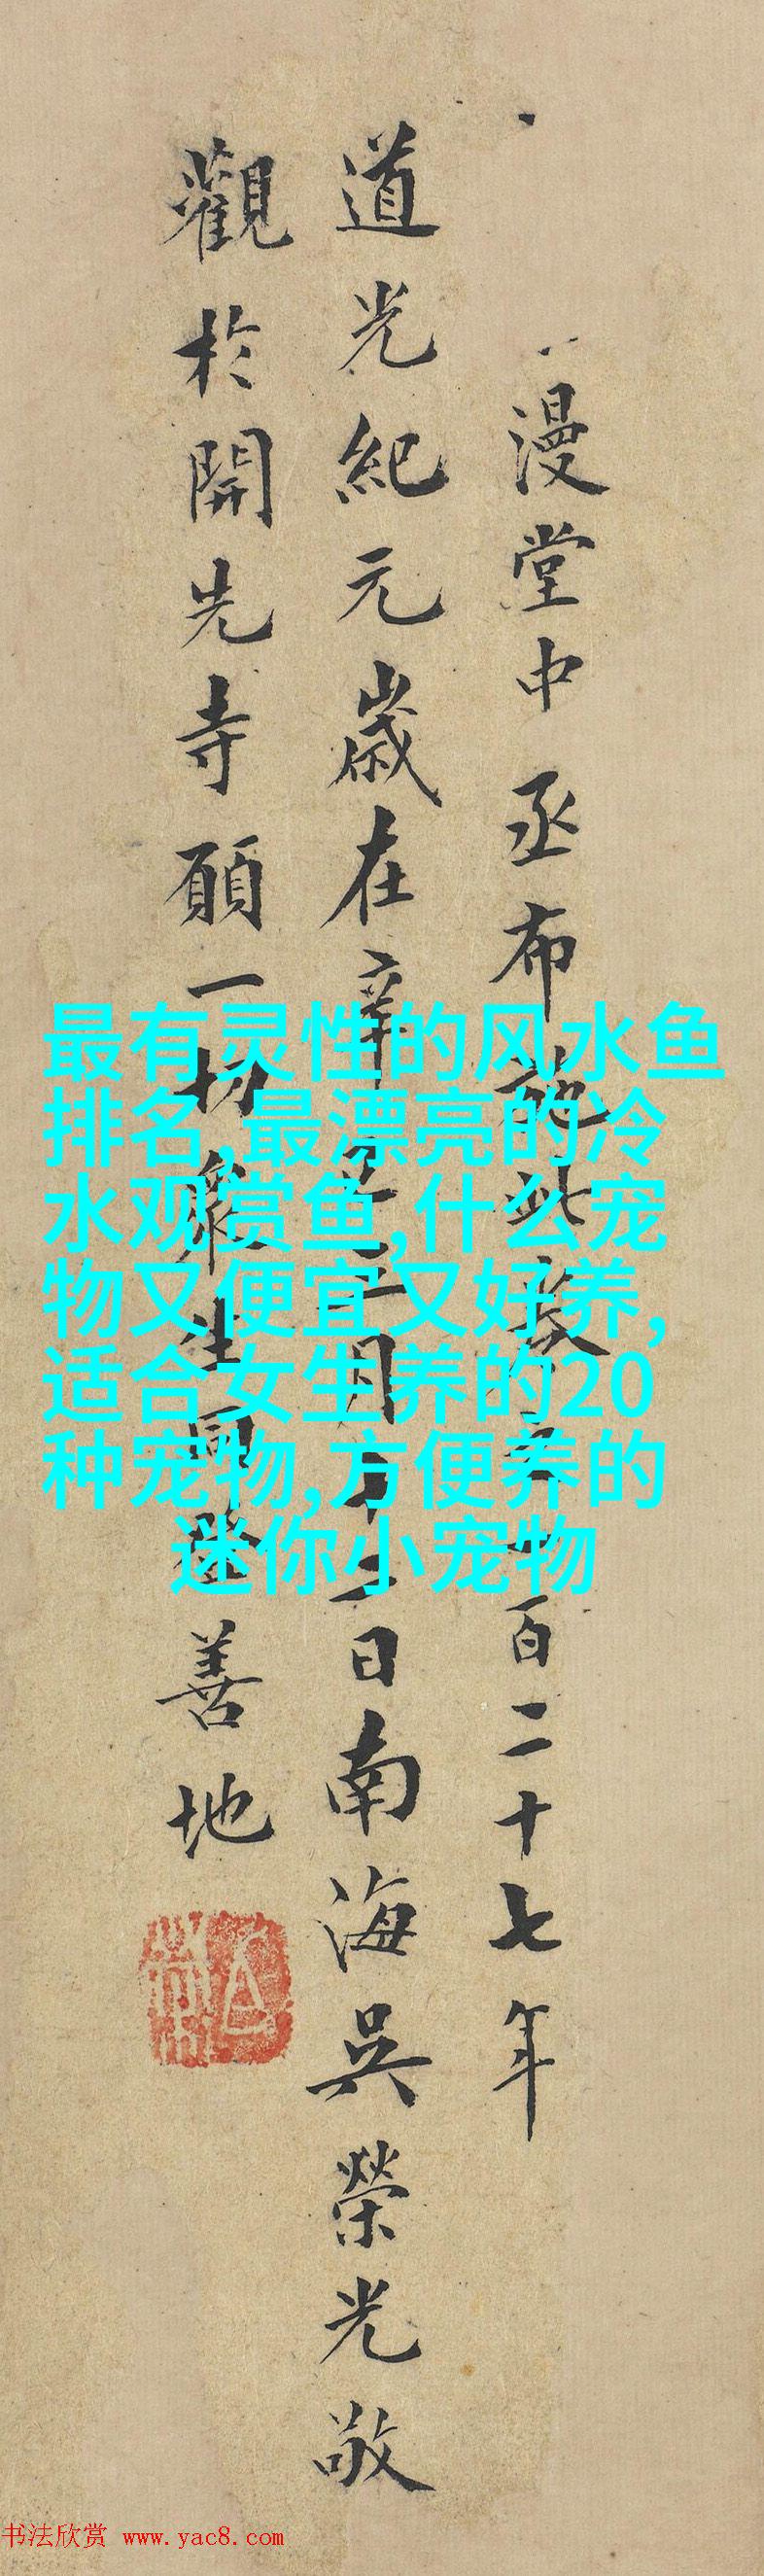 漫堂中丞布施此卷之百二十七年
道光紀元歲在辛巳三月十二日南海吳榮光敬
觀於開先寺願一切衆生同登善地
最有灵性的风水鱼
排名,最漂亮的冷
水观赏鱼,什么宠
物又便宜又好养,
适合女生养的20
种宠物,方便养的
迷你小宠物
书法欣赏 www.yac8.com